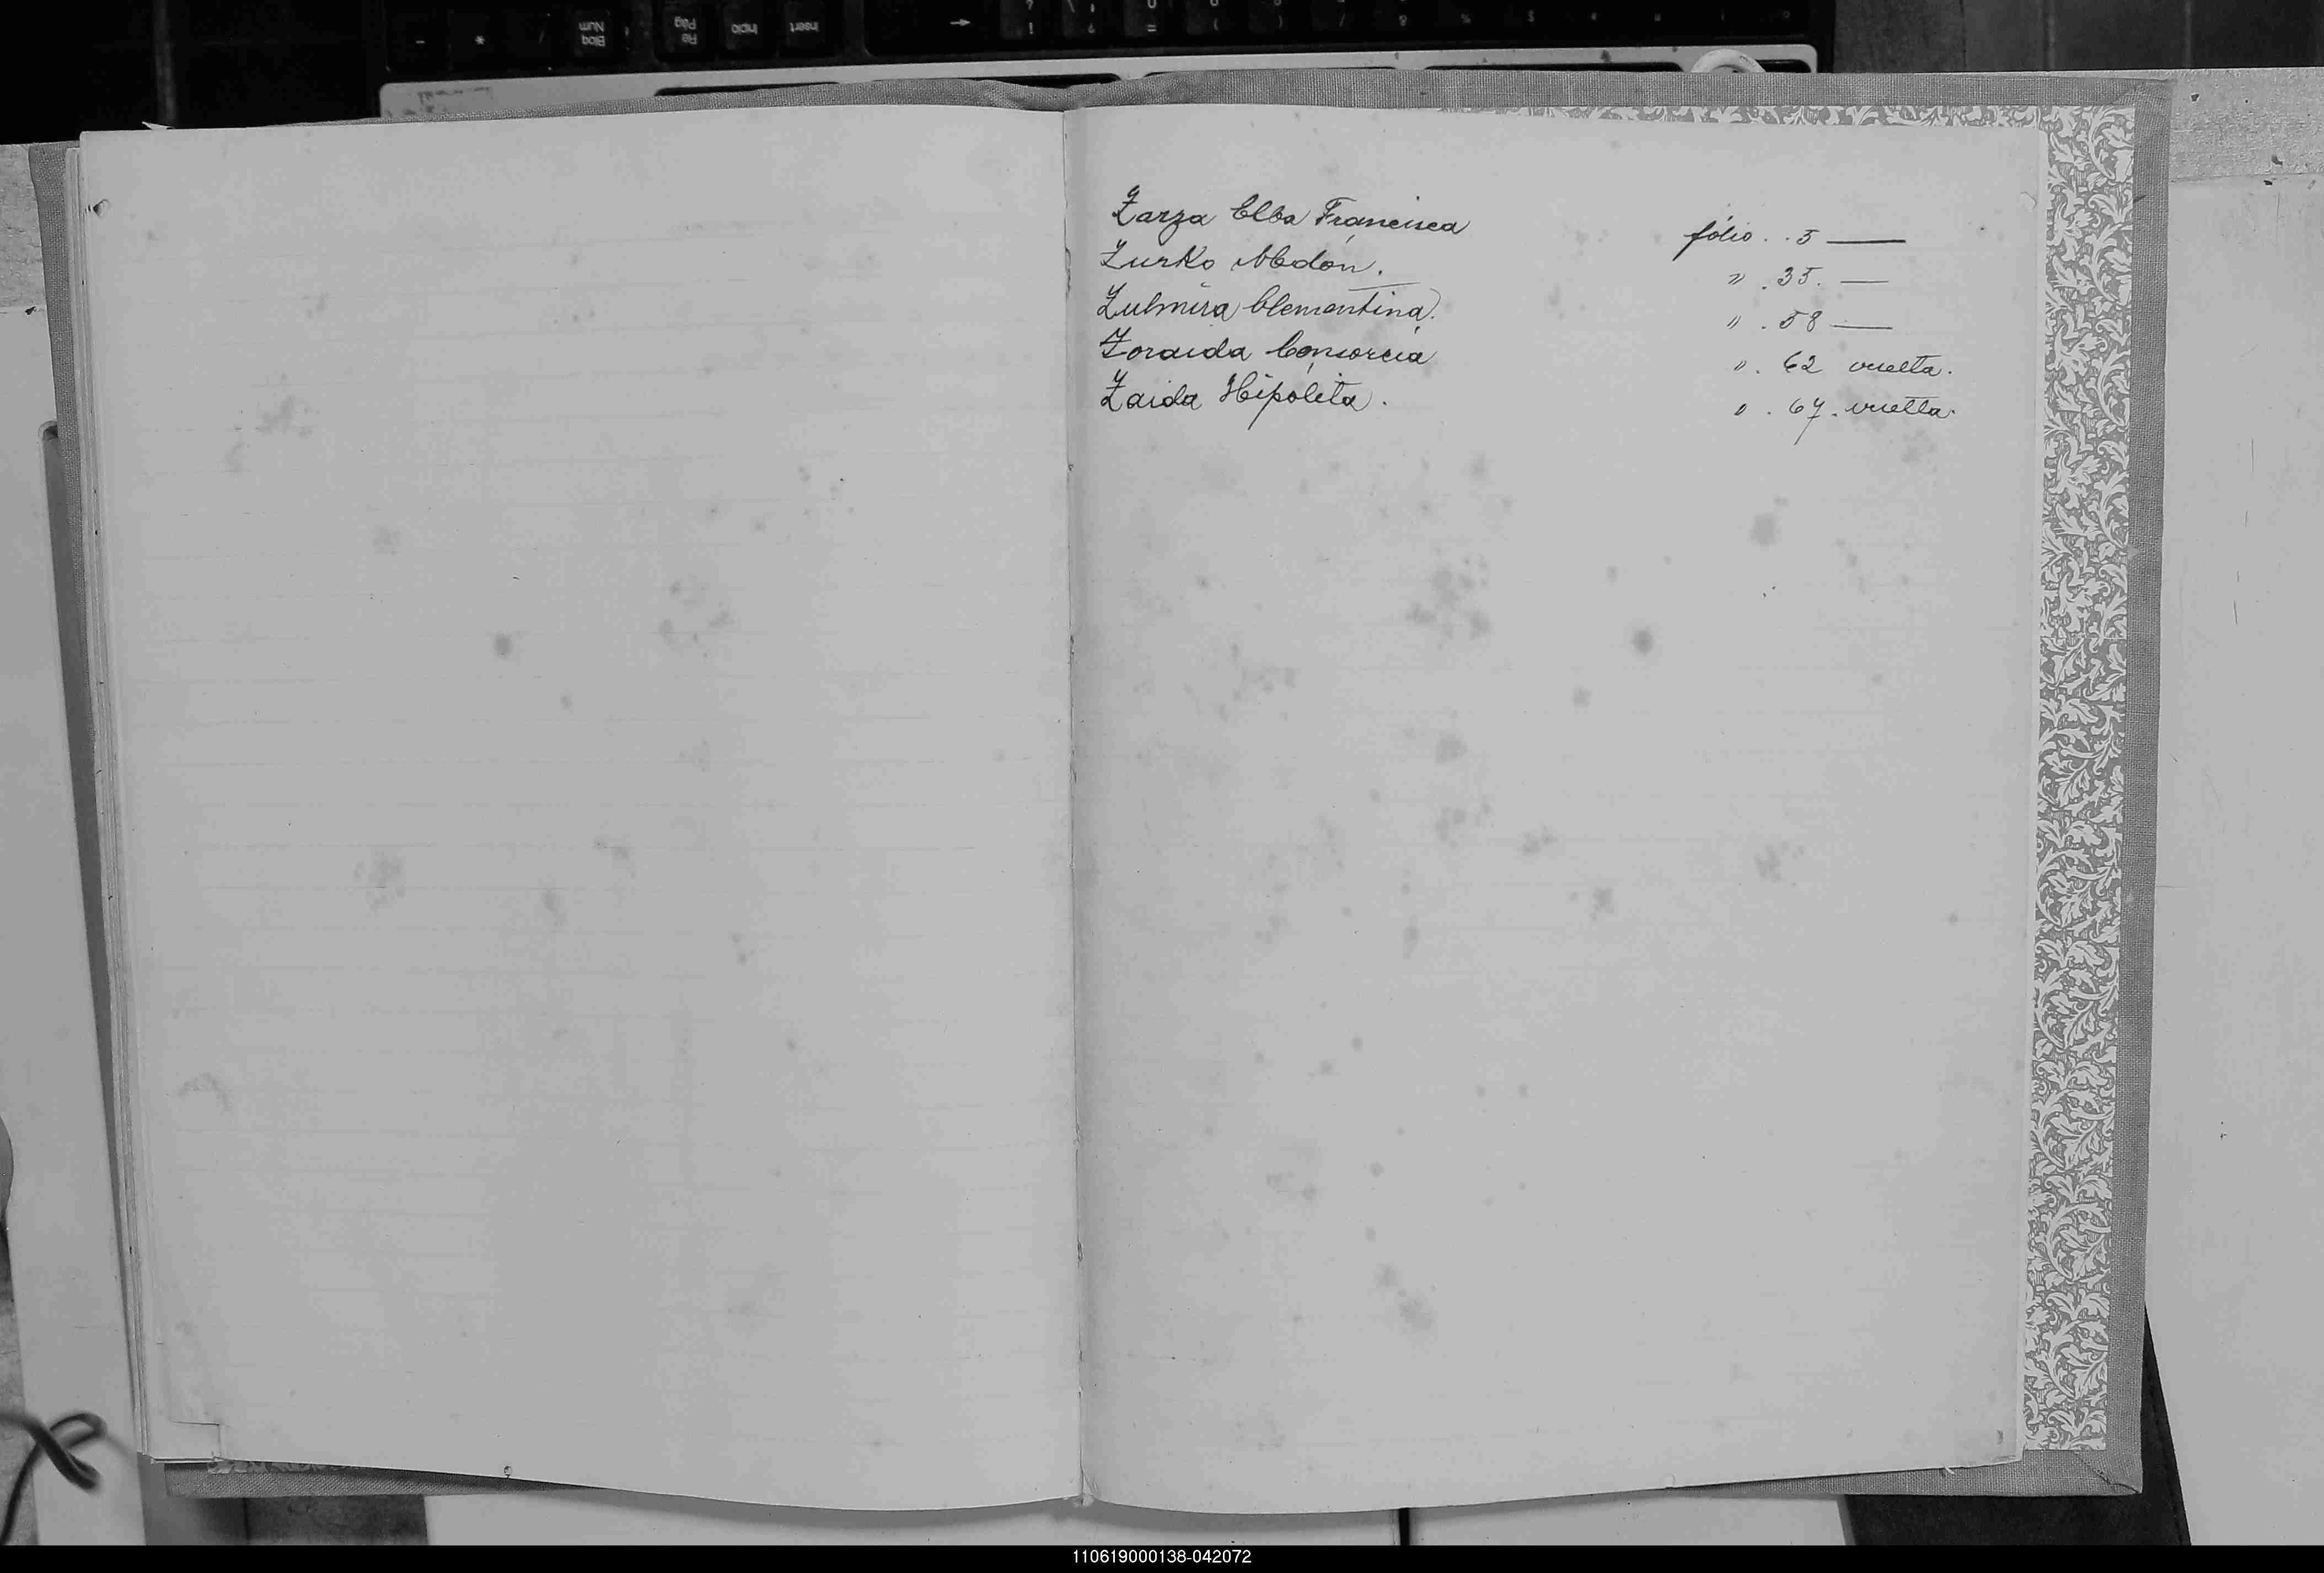 Zarza Elba Francisca fólio . . 5 —
Zurko Abdón. " . 35. —
Zulmira Clementina. " . 58 —
Zoraida Consorcia " . 62 vuelta.
Zaida Hipólita . " . 67 . vuelta.
110619000138-042072